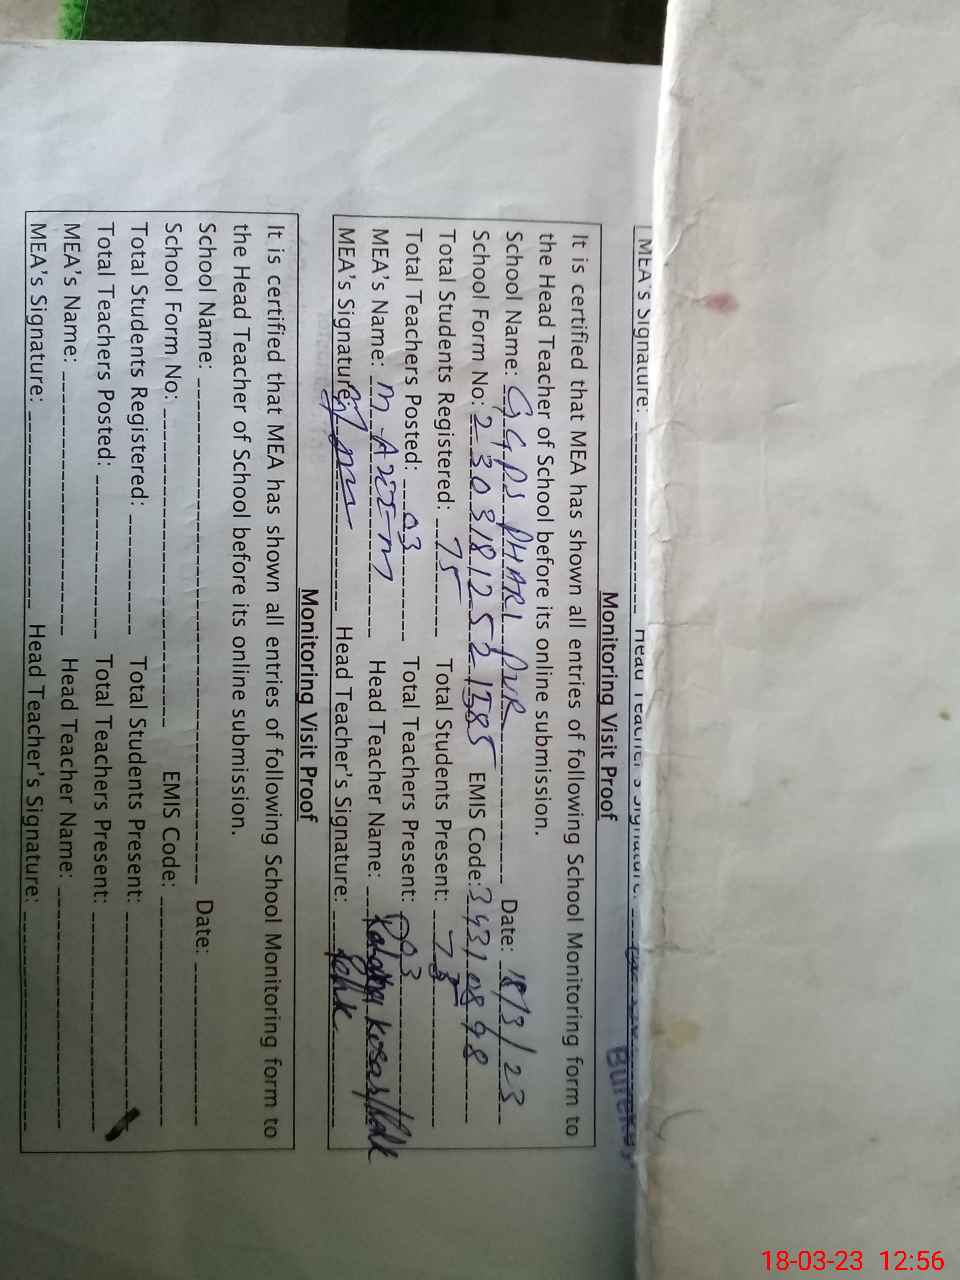 MEA's Signature: Head Teacher's Signature:
Monitoring Visit Proof
It is certified that MEA has shown all entries of following School Monitoring form to
the Head Teacher of School before its online submission.
School Name: GGPS DHARI PUR Date: 18/3/23
School Form No: 230318125 EMIS Code: 34310898
Total Students Registered: 75 Total Students Present:
Total Teachers Posted: 03 Total Teachers Present: 03
MEA's Name: M. Azeem Head Teacher Name: Kosar
MEA's Signature: Head Teacher's Signature:
Monitoring Visit Proof
It is certified that MEA has shown all entries of following School Monitoring form to
the Head Teacher of School before its online submission.
School Name: Date:
School Form No: EMIS Code:
Total Students Registered: Total Students Present:
Total Teachers Posted: Total Teachers Present:
MEA's Name: Head Teacher Name:
MEA's Signature: Head Teacher's Signature:
18-03-23 12:56